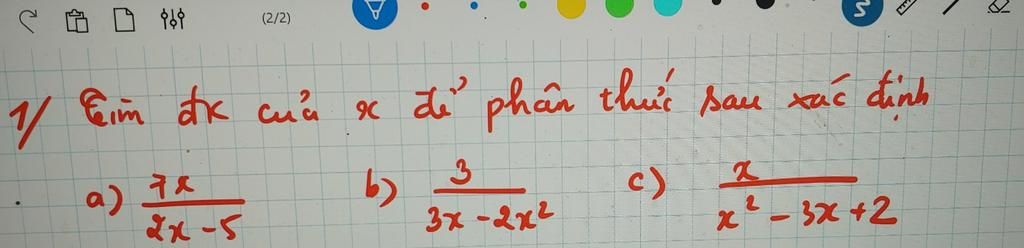 (2/2)
1/ Tìm đk của x để phân thức sau xác định
a) 7x / 2x - 5 b) 3 / 3x - 2x² c) x / x² - 3x + 2